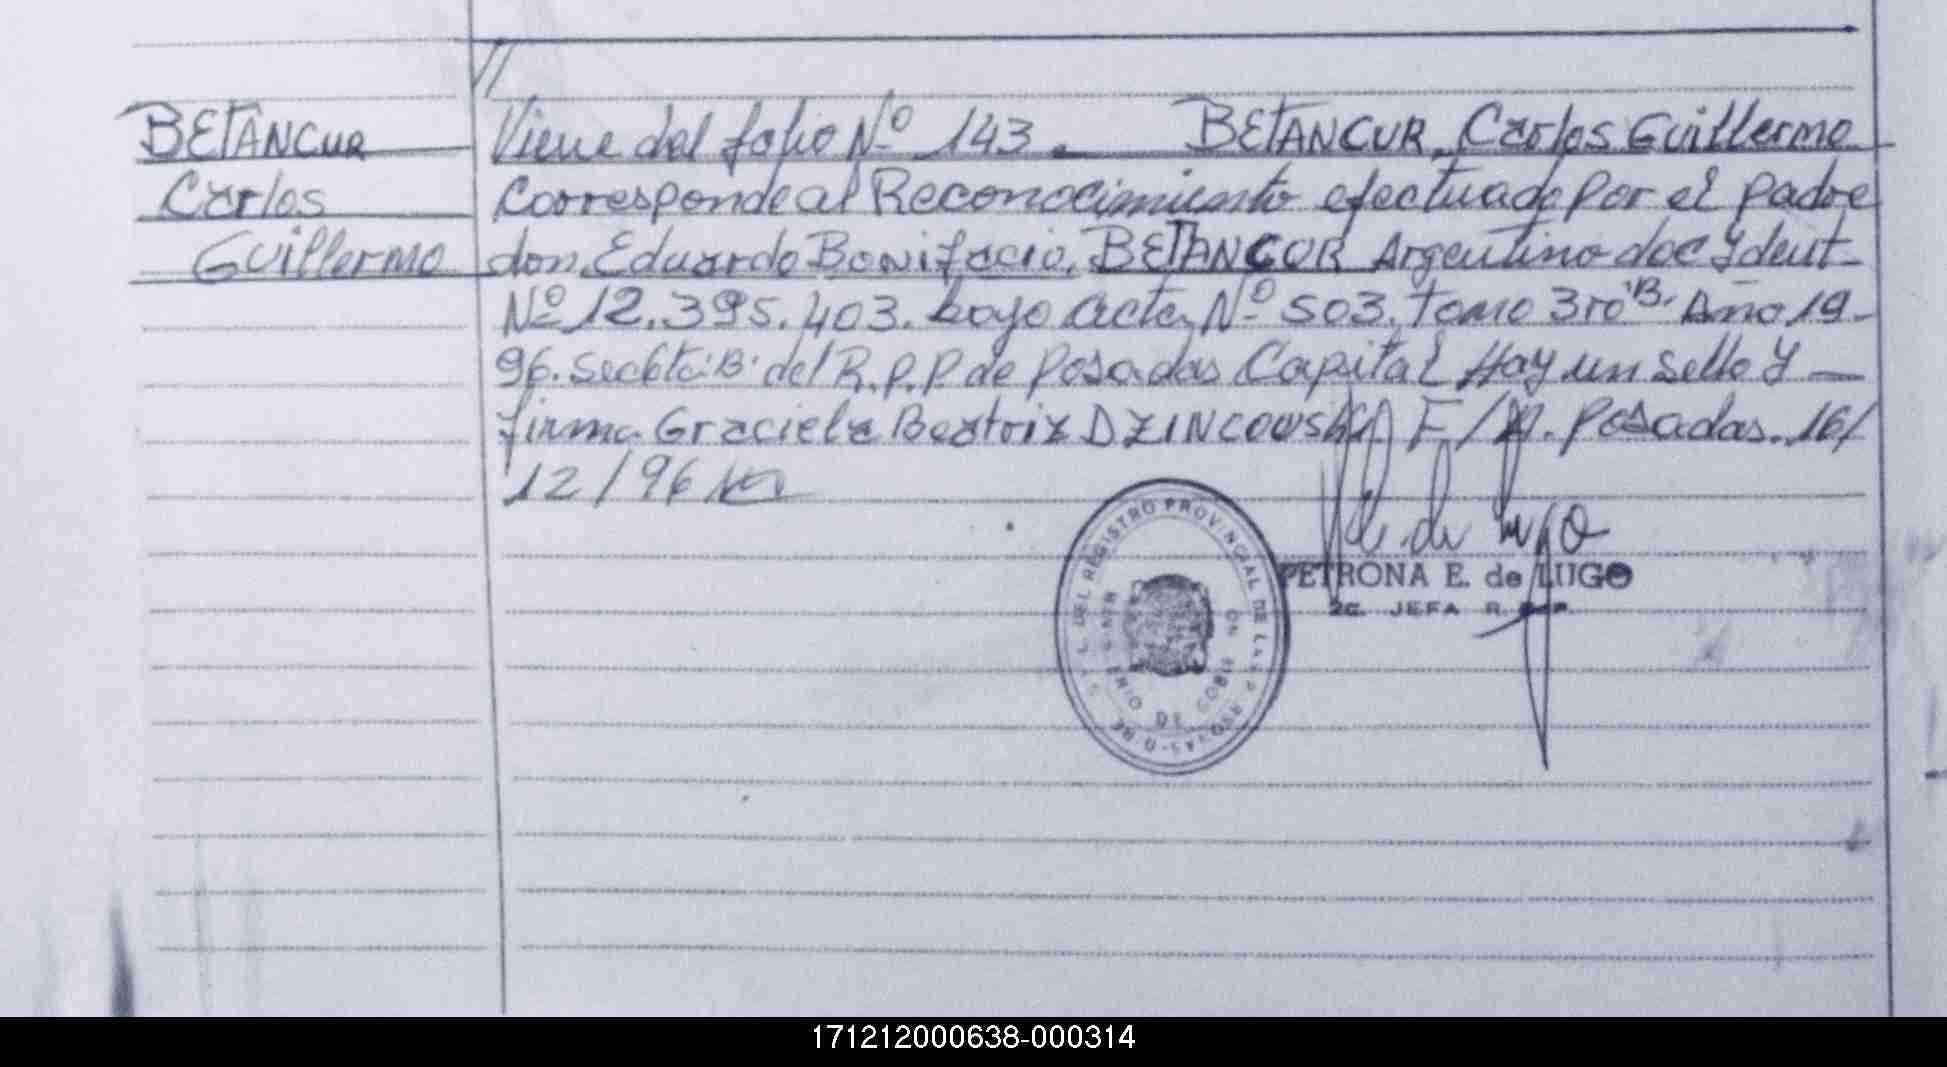 BETANCUR
Carlos
Guillermo
Viene del folio Nº 143. BETANCUR, Carlos Guillermo
Corresponde al Reconocimiento efectuado por el padre
don, Eduardo Bonifacio, BETANCUR Argentino doc Ydent-
Nº 12.395.403. bajo acta, Nº 503, tomo 3ro "B" Año 19-
96. Seckta "B" del R.P.P de Posadas Capital Hay un Sello y
firma Graciela Beatriz DZINCOWSKI F/M. Posadas. 16/
12/96
PETRONA E. de LUGO
2a. JEFA R. P. P.
DEL REGISTRO PROVINCIAL DE LAS P
POSADAS
DE GOBIERNO
171212000638-000314